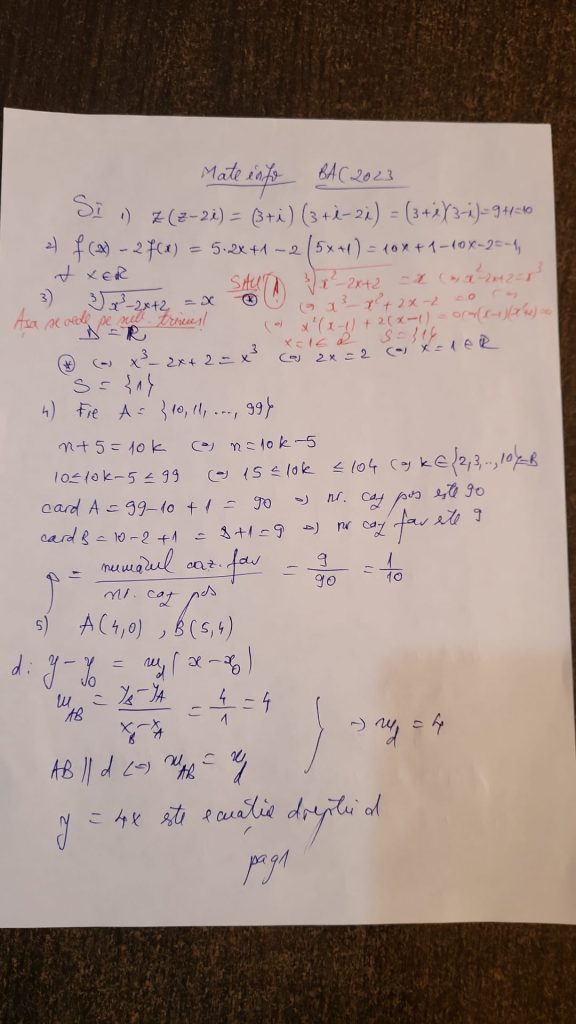 Mate info BAC 2023
SI 1) z(z-2i) = (3+i)(3+i-2i) = (3+i)(3-i)=9+1=10
2) f(2x) - 2f(x) = 5·2x+1-2(5x+1)=10x+1-10x-2=-1,
∀ x∈ℝ
3) ∛x³-2x+2 = x ⊛
Așa se vede pe sub. trimis!
D = ℝ
SAU ∛x²-2x+2 = x ⇔ x²-2x+2=x³
⇔ x³-x²+2x-2 =0 ⇔
⇔ x²(x-1)+2(x-1)=0 ⇔ (x-1)(x²+2)=0
x=1∈ℝ S={1}
⊛ ⇔ x³-2x+2=x³ ⇔ 2x=2 ⇔ x=1∈ℝ
S = {1}
4) Fie A = {10,11,...,99}
n+5=10k ⇔ n=10k-5
10≤10k-5≤99 ⇔ 15≤10k ≤104 ⇔ k∈{2,3,..,10}=B
card A = 99-10+1 = 90 ⇒ nr. caz pos este 90
card B = 10-2+1 = 8+1=9 ⇒ nr caz fav este 9
p = numărul caz. fav / nr. caz pos = 9/90 = 1/10
5) A(4,0), B(5,4)
d: y-y₀ = m_d(x-x₀)
m_AB = y_B-y_A / x_B-x_A = 4/1 = 4
⇒ m_d = 4
AB || d ⇔ m_AB = m_d
y = 4x este ecuația dreptei d
pag1